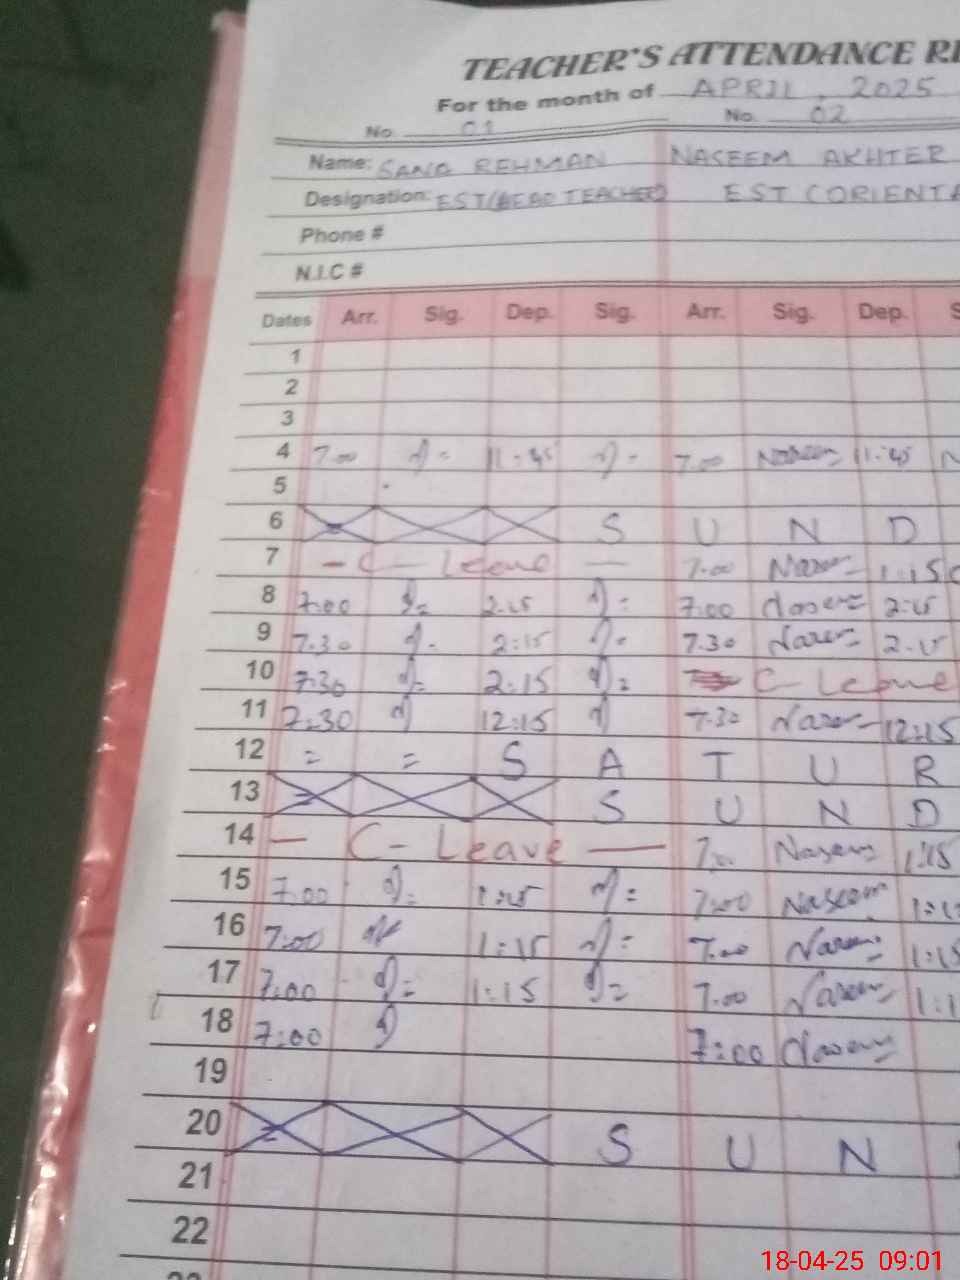 TEACHER'S ATTENDANCE RE
For the month of APRIL, 2025
No. 01 No. 02
Name: SANA REHMAN NASEEM AKHTER
Designation: EST(HEAD TEACHER) EST (ORIENTA
Phone #
N.I.C #
Dates Arr. Sig. Dep. Sig. Arr. Sig. Dep. S
1
2
3
4 7.00 11:45 7.00 Naseem 11:45 N
5
6 S U N D
7 - C - Leave - 7.00 Naseem 1:15
8 7:00 2:15 7:00 Naseem 2:15
9 7.30 2:15 7.30 Naseem 2:15
10 7:30 2:15 C- Leave
11 7:30 12:15 7:30 Naseem 12:15
12 = = S A T U R
13 S U N D
14 - C- Leave - 7:00 Naseem 1:15
15 7.00 1:15 7:00 Naseem 1:1
16 7:00 1:15 7:00 Naseem 1:15
17 7:00 1:15 7.00 Naseem 1:1
18 7:00 7:00 Naseem
19
20 S U N
21
22
23
18-04-25 09:01